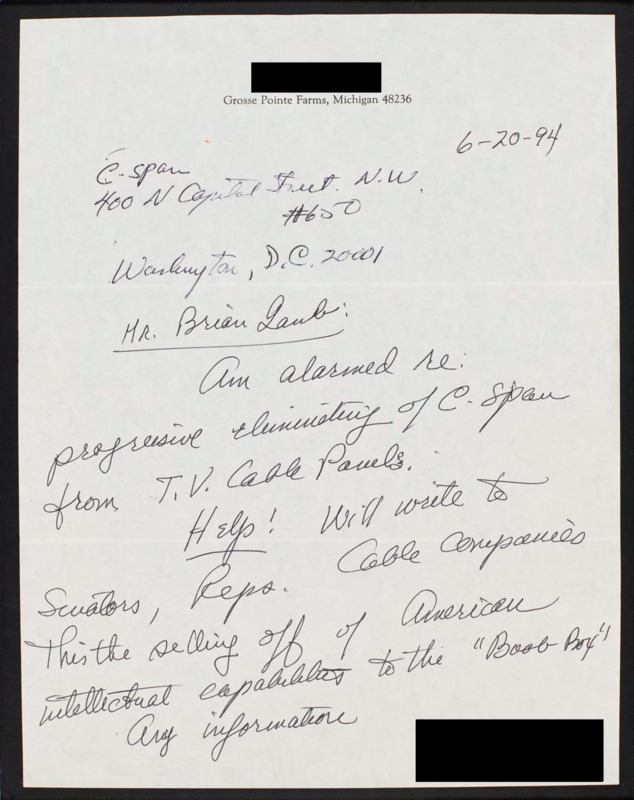 Grosse Pointe Farms, Michigan 48236
6-20-94
C-Span
400 N Capitol Street. N.W.
#650
Washington, D.C. 20001
Mr. Brian Lamb:
Am alarmed re:
progressive eliminating of C-Span
from T.V. Cable Panels.
Help! Will write to
Senators, Reps. Cable Companies
This the selling off of American
intellectual capabilities to the "Boob Box"
Any information